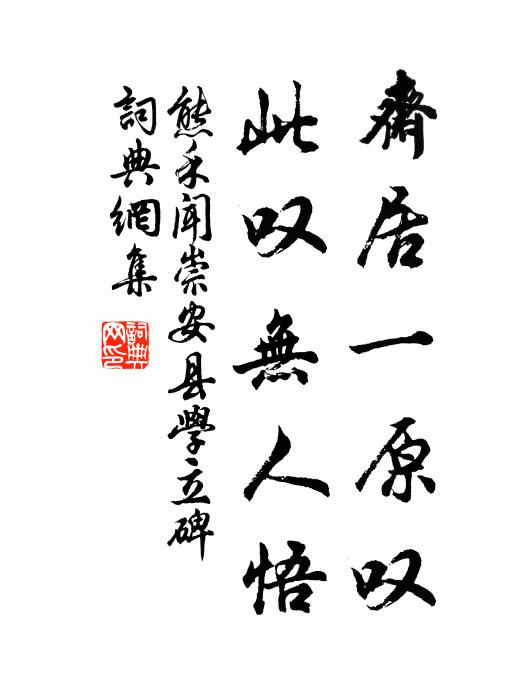 齋居一原叹
此叹無人悟
熊禾闻崇安县學立碑
詞典網集
詞典网印